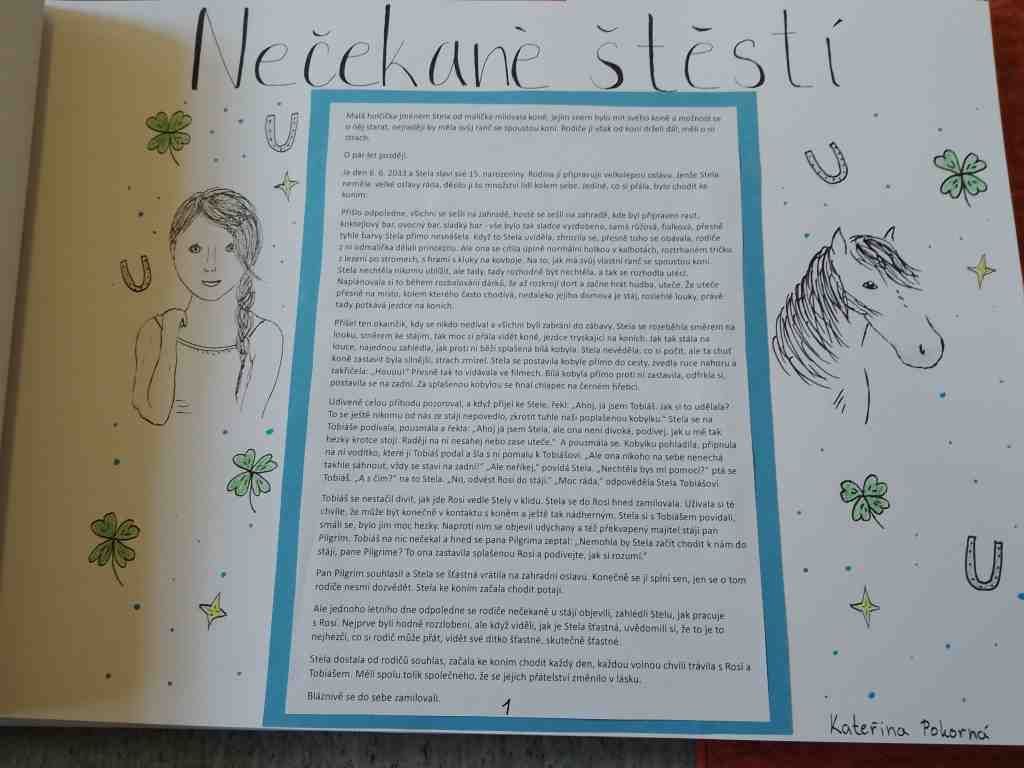 Nečekané štěstí
Malá holčička jménem Stela od malička milovala koně, jejím snem bylo mít svého koně a možnost se
o něj starat, nejraději by měla svůj ranč se spoustou koní. Rodiče ji však od koní drželi dál, měli o ni
strach.
O pár let později.
Je den 6. 6. 2033 a Stela slaví své 15. narozeniny. Rodina jí připravuje velkolepou oslavu, jenže Stela
neměla velké oslavy ráda, děsilo ji to množství lidí kolem sebe. Jediné, co si přála, bylo chodit ke
koním.
Přišlo odpoledne, všichni se sešli na zahradě, hosté se sešli na zahradě, kde byl připraven raut,
koktejlový bar, ovocný bar, sladký bar - vše bylo tak sladce vyzdobeno, samá růžová, fialková, přesně
tyhle barvy Stela přímo nesnášela. Když to Stela uviděla, zhrozila se, přesně toho se obávala, rodiče
z ní odmalička dělali princeznu. Ale ona se cítila úplně normální holkou v kalhotách, roztrhaném tričku
z lezení po stromech, s hrami s kluky na kovboje. Na to, jak má svůj vlastní ranč se spoustou koní.
Stela nechtěla nikomu ublížit, ale tady, tady rozhodně být nechtěla, a tak se rozhodla utéct.
Naplánovala si to během rozbalování dárků, že až rozkrojí dort a začne hrát hudba, uteče. Že uteče
přesně na místo, kolem kterého často chodívá, nedaleko jejího domova je stáj, rozlehlé louky, právě
tady potkává jezdce na koních.
Přišel ten okamžik, kdy se nikdo nedíval a všichni byli zabráni do zábavy. Stela se rozeběhla směrem na
louku, směrem ke stájím, tak moc si přála vidět koně, jezdce tryskající na koních. Jak tak stála na
louce, najednou zahlédla, jak proti ní běží splašená bílá kobyla. Stela nevěděla, co si počít, ale ta chuť
koně zastavit byla silnější, strach zmizel. Stela se postavila kobyle přímo do cesty, zvedla ruce nahoru a
zakřičela: „Houuu!“ Přesně tak to vídávala ve filmech. Bílá kobyla přímo proti ní zastavila, odfrkla si,
postavila se na zadní. Za splašenou kobylou se hnal chlapec na černém hřebci.
Udiveně celou příhodu pozoroval, a když přijel ke Stele, řekl: „Ahoj, já jsem Tobiáš. Jak si to udělala?
To se ještě nikomu od nás ze stájí nepovedlo, zkrotit tuhle naši poplašenou kobylku.“ Stela se na
Tobiáše podívala, pousmála a řekla: „Ahoj já jsem Stela, ale ona není divoká, podívej, jak u mě tak
hezky krotce stojí. Raději na ni nesahej nebo zase uteče.“ A pousmála se. Kobylku pohladila, připnula
na ni vodítko, které jí Tobiáš podal a šla s ní pomalu k Tobiášovi. „Ale ona nikoho na sebe nenechá
takhle sáhnout, vždy se staví na zadní!“ „Ale neříkej,“ povídá Stela. „Nechtěla bys mi pomoci?“ ptá se
Tobiáš. „A s čím?“ na to Stela. „No, odvést Rosi do stájí.“ „Moc ráda,“ odpověděla Stela Tobiášovi.
Tobiáš se nestačil divit, jak jde Rosi vedle Stely v klidu. Stela se do Rosi hned zamilovala. Užívala si té
chvíle, že může být konečně v kontaktu s koněm a ještě tak nádherným. Stela si s Tobiášem povídali,
smáli se, bylo jim moc hezky. Naproti nim se objevil udýchaný a též překvapený majitel stájí pan
Pilgrim. Tobiáš na nic nečekal a hned se pana Pilgrima zeptal: „Nemohla by Stela začít chodit k nám do
stájí, pane Pilgrime? To ona zastavila splašenou Rosi a podívejte, jak si rozumí.“
Pan Pilgrim souhlasil a Stela se šťastná vrátila na zahradní oslavu. Konečně se jí splní sen, jen se o tom
rodiče nesmí dozvědět. Stela ke koním začala chodit potají.
Ale jednoho letního dne odpoledne se rodiče nečekaně u stájí objevili, zahlédli Stelu, jak pracuje
s Rosi. Nejprve byli hodně rozzlobení, ale když viděli, jak je Stela šťastná, uvědomili si, že to je to
nejhezčí, co si rodič může přát, vidět své dítko šťastné, skutečně šťastné.
Stela dostala od rodičů souhlas, začala ke koním chodit každý den, každou volnou chvíli trávila s Rosi a
Tobiášem. Měli spolu tolik společného, že se jejich přátelství změnilo v lásku.
Bláznivě se do sebe zamilovali.
1
Kateřina Pokorná